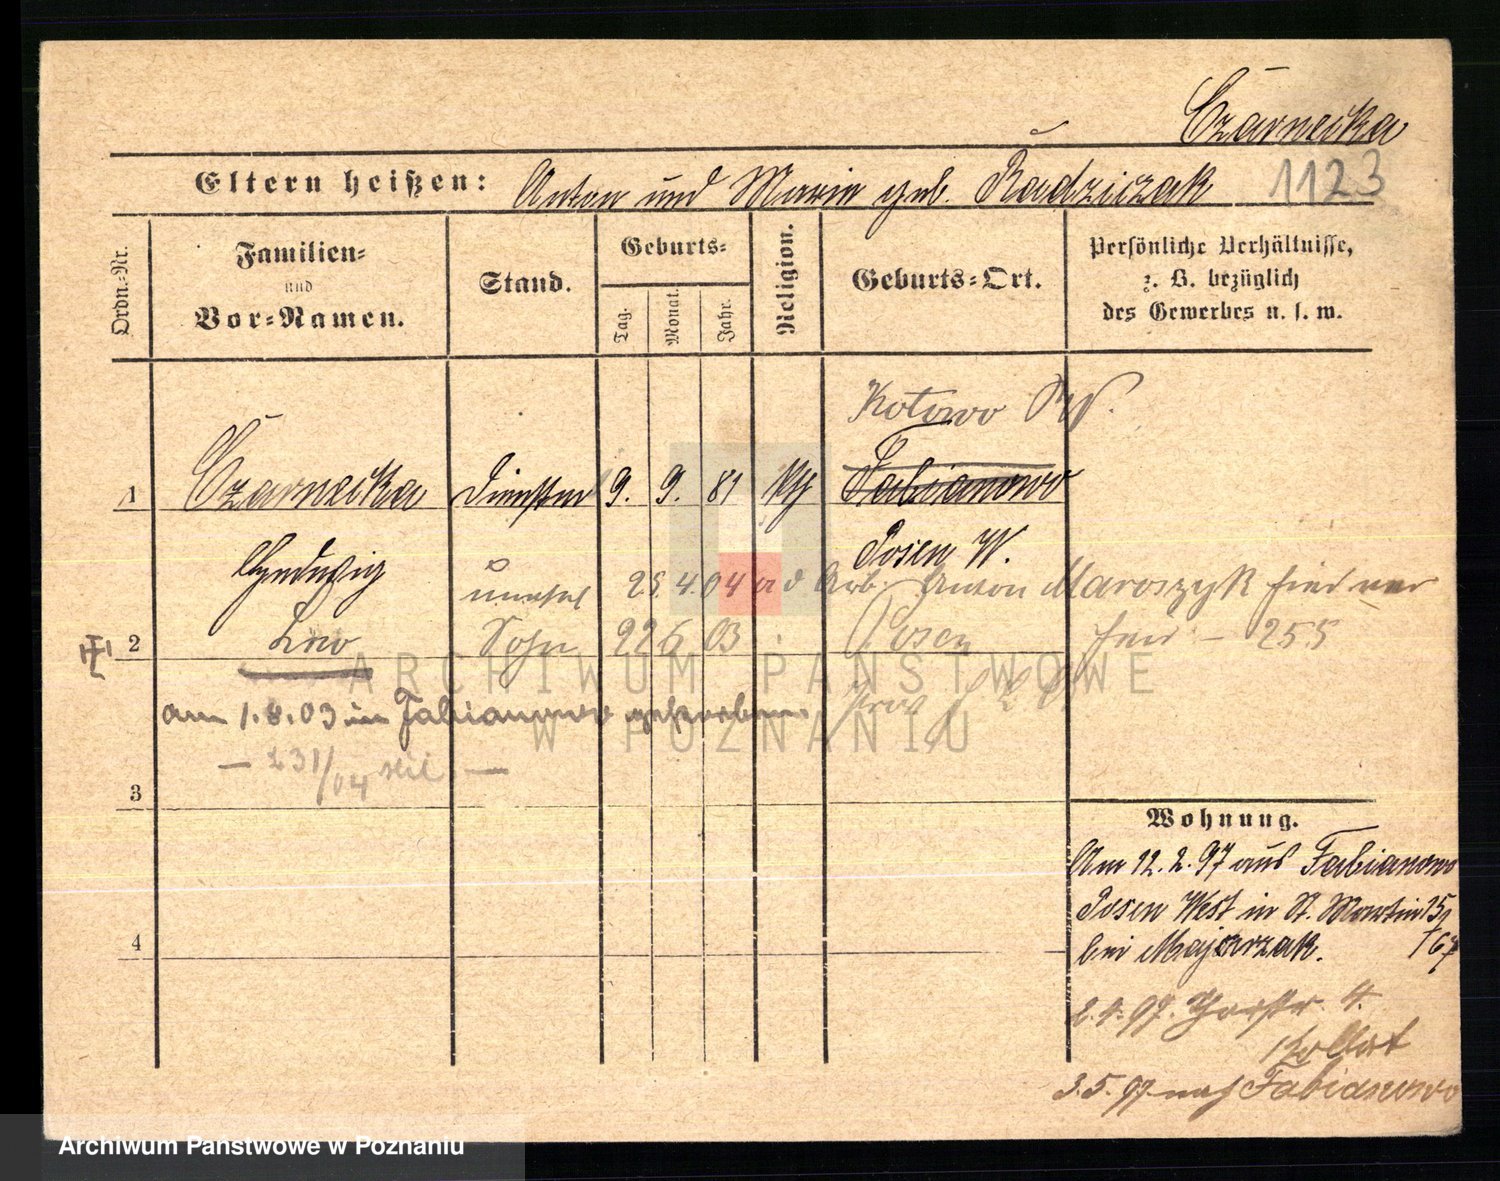 Czarnecka
Eltern heißen: Anton und Marie geb. Radziczak 1123
Ordn.-Nr.
Familien- und Vor-Namen.
Stand.
Geburts-
Tag. Monat. Jahr.
Religion.
Geburts-Ort.
Persönliche Verhältnisse, z. B. bezüglich des Gewerbes u. s. w.
Kotowo
1 Czarnecka 9. 9. 81 kth Fabianowo
Hedwig
Posen W.
unehel 25.4.04 Arb. Anton Maroszyk
2 Leo Sohn 22 6 03 Posen 255
am 1.8.03 in Fabianowo gestorben
— 231/04 —
3
4
Wohnung.
Am 12.2.97 aus Fabianowo
Posen West in St. Martin 15
bei Majcrzak. /67
2.4.97. 4.
3.5.97 nach Fabianowo
ARCHIWUM PAŃSTWOWE
W POZNANIU
Archiwum Państwowe w Poznaniu